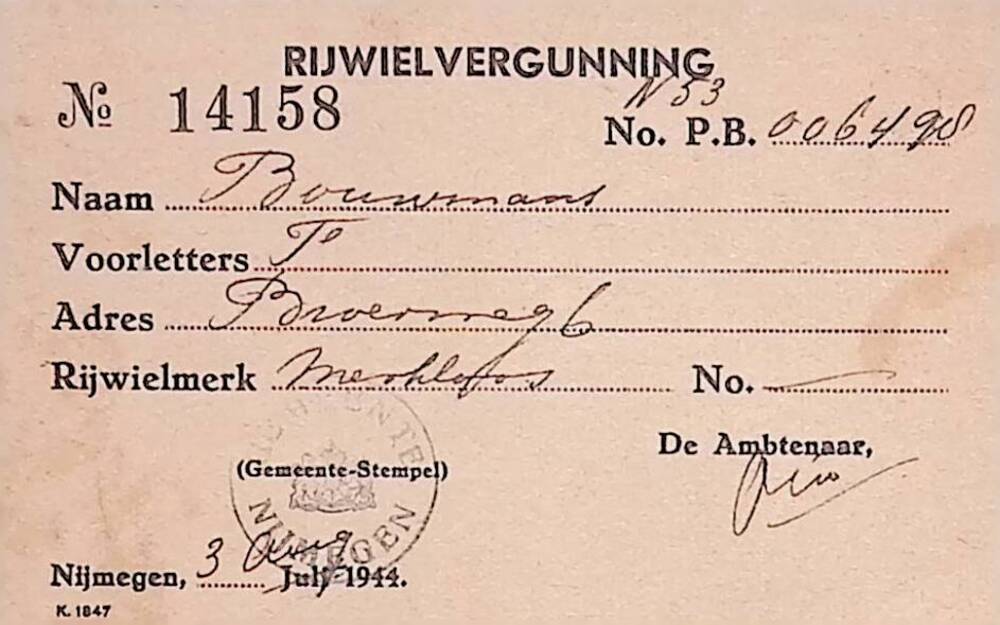 RIJWIELVERGUNNING
№ 14158
N 53
No. P.B. 006498
Naam Bouwmans
Voorletters F
Adres Broerweg 6
Rijwielmerk Merkloos No. —
De Ambtenaar,
(Gemeente-Stempel)
GEMEENTE NIJMEGEN
Nijmegen, 3 Aug Juli 1944.
K. 1847